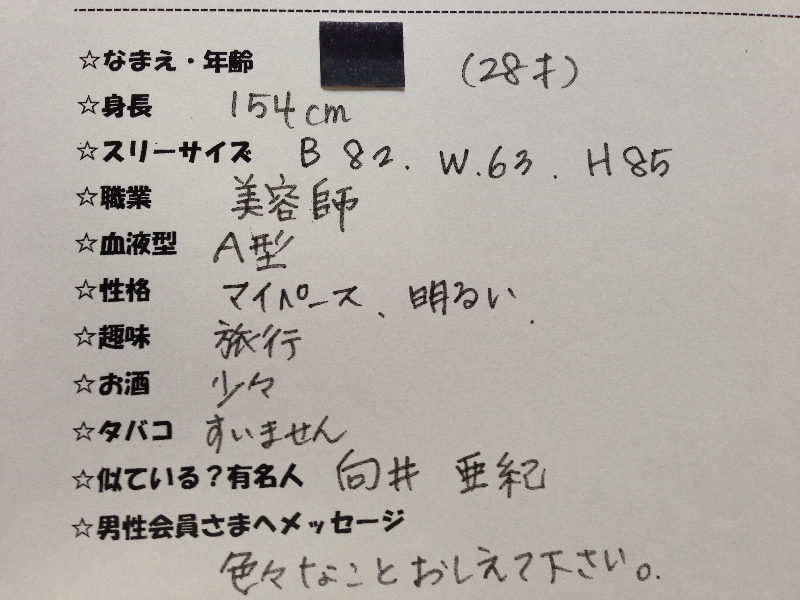 ☆なまえ・年齢 (28才)
☆身長 154cm
☆スリーサイズ B 82. W.63. H 85
☆職業 美容師
☆血液型 A型
☆性格 マイペース、明るい.
☆趣味 旅行
☆お酒 少々
☆タバコ すいません
☆似ている?有名人 向井 亜紀
☆男性会員さまへメッセージ
色々なことおしえて下さい。